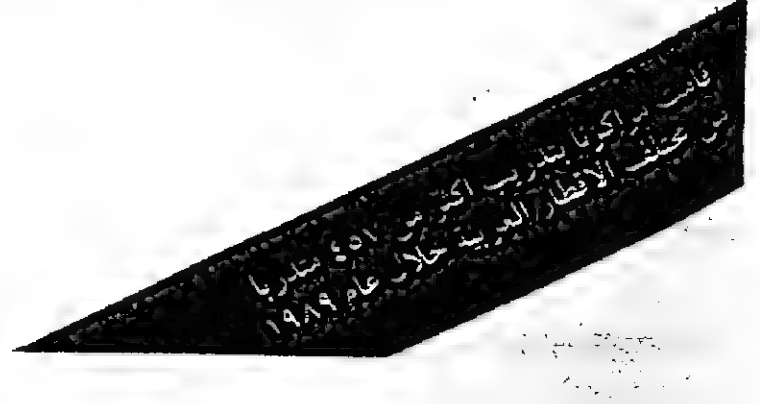 قامت مراكزنا بتدريب اكثر من ٤٥١ متدربا
من مختلف الاقطار العربية خلال عام ١٩٨٩